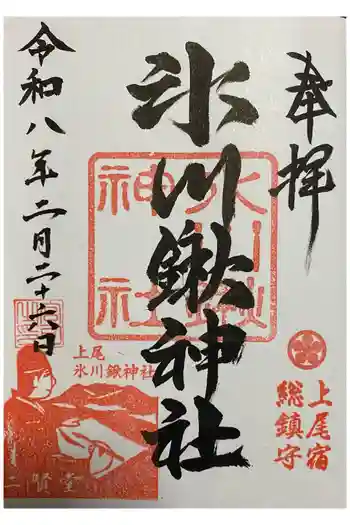 奉拝
上尾宿
総鎮守
氷川鍬神社
氷川鍬
神社
上尾
氷川鍬神社
二賢堂
令和八年二月二十六日